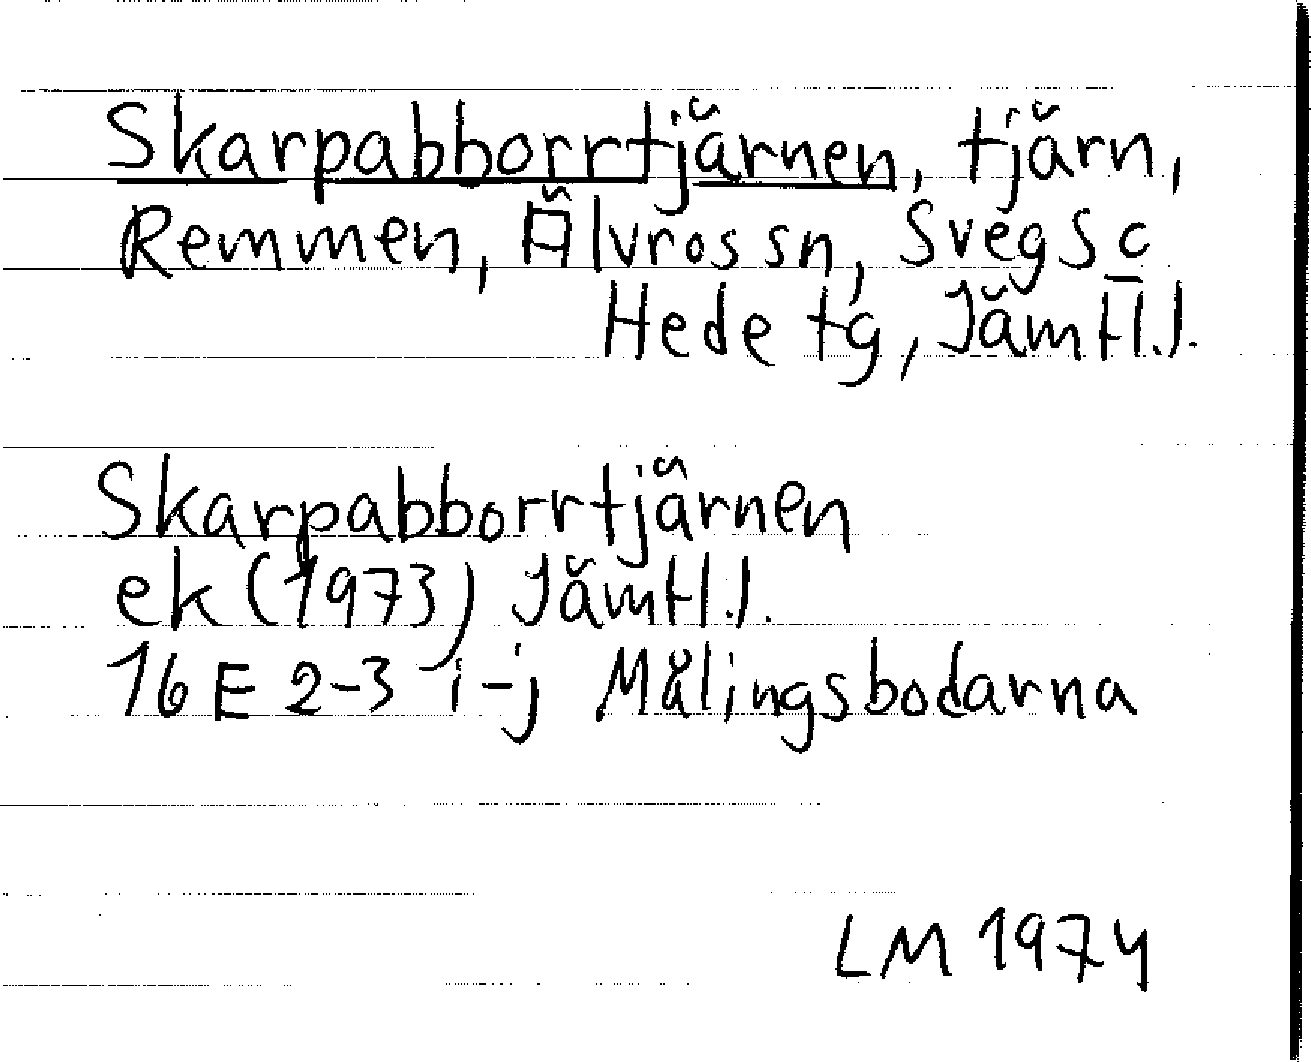 Skarpabborrtjärnen, tjärn,
Remmen, Älvros sn, Svegs o
Hede tg, Jämtl.l.
Skarpabborrtjärnen
ek (1973) Jämtl.l.
16 E 2-3 i-j Målingsbodarna
LM 1974